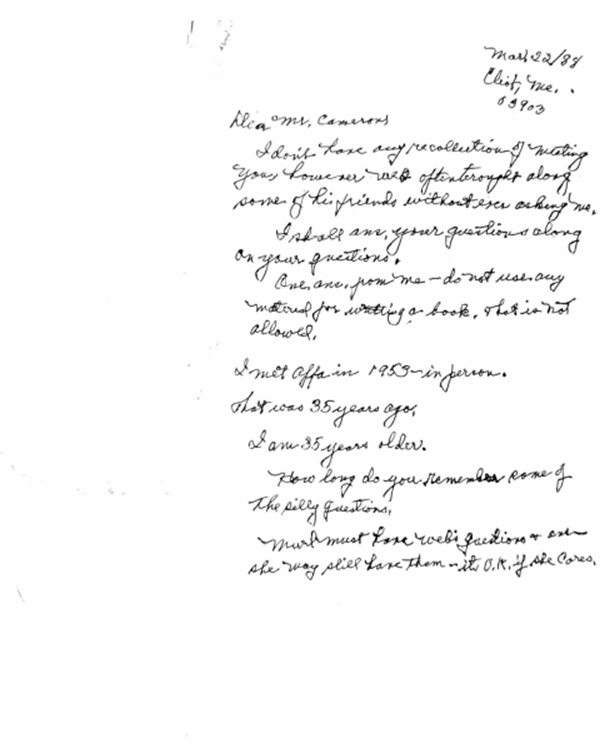 Mar. 22/88
Eliot, Me.
03903
Dear Mr. Cameron,
I don't have any recollection of meeting
you, however Web often brought along
some of his friends without ever asking me.
I shall ans. your questions along
on your questions.
One ans. from me – do not use any
material for writing a book. That is not
allowed.
I met Affa in 1953 – in person.
That was 35 years ago.
I am 35 years older.
How long do you remember some of
the silly questions.
must have Web's questions & ans–
she may still have them – its O.K. if she cares.